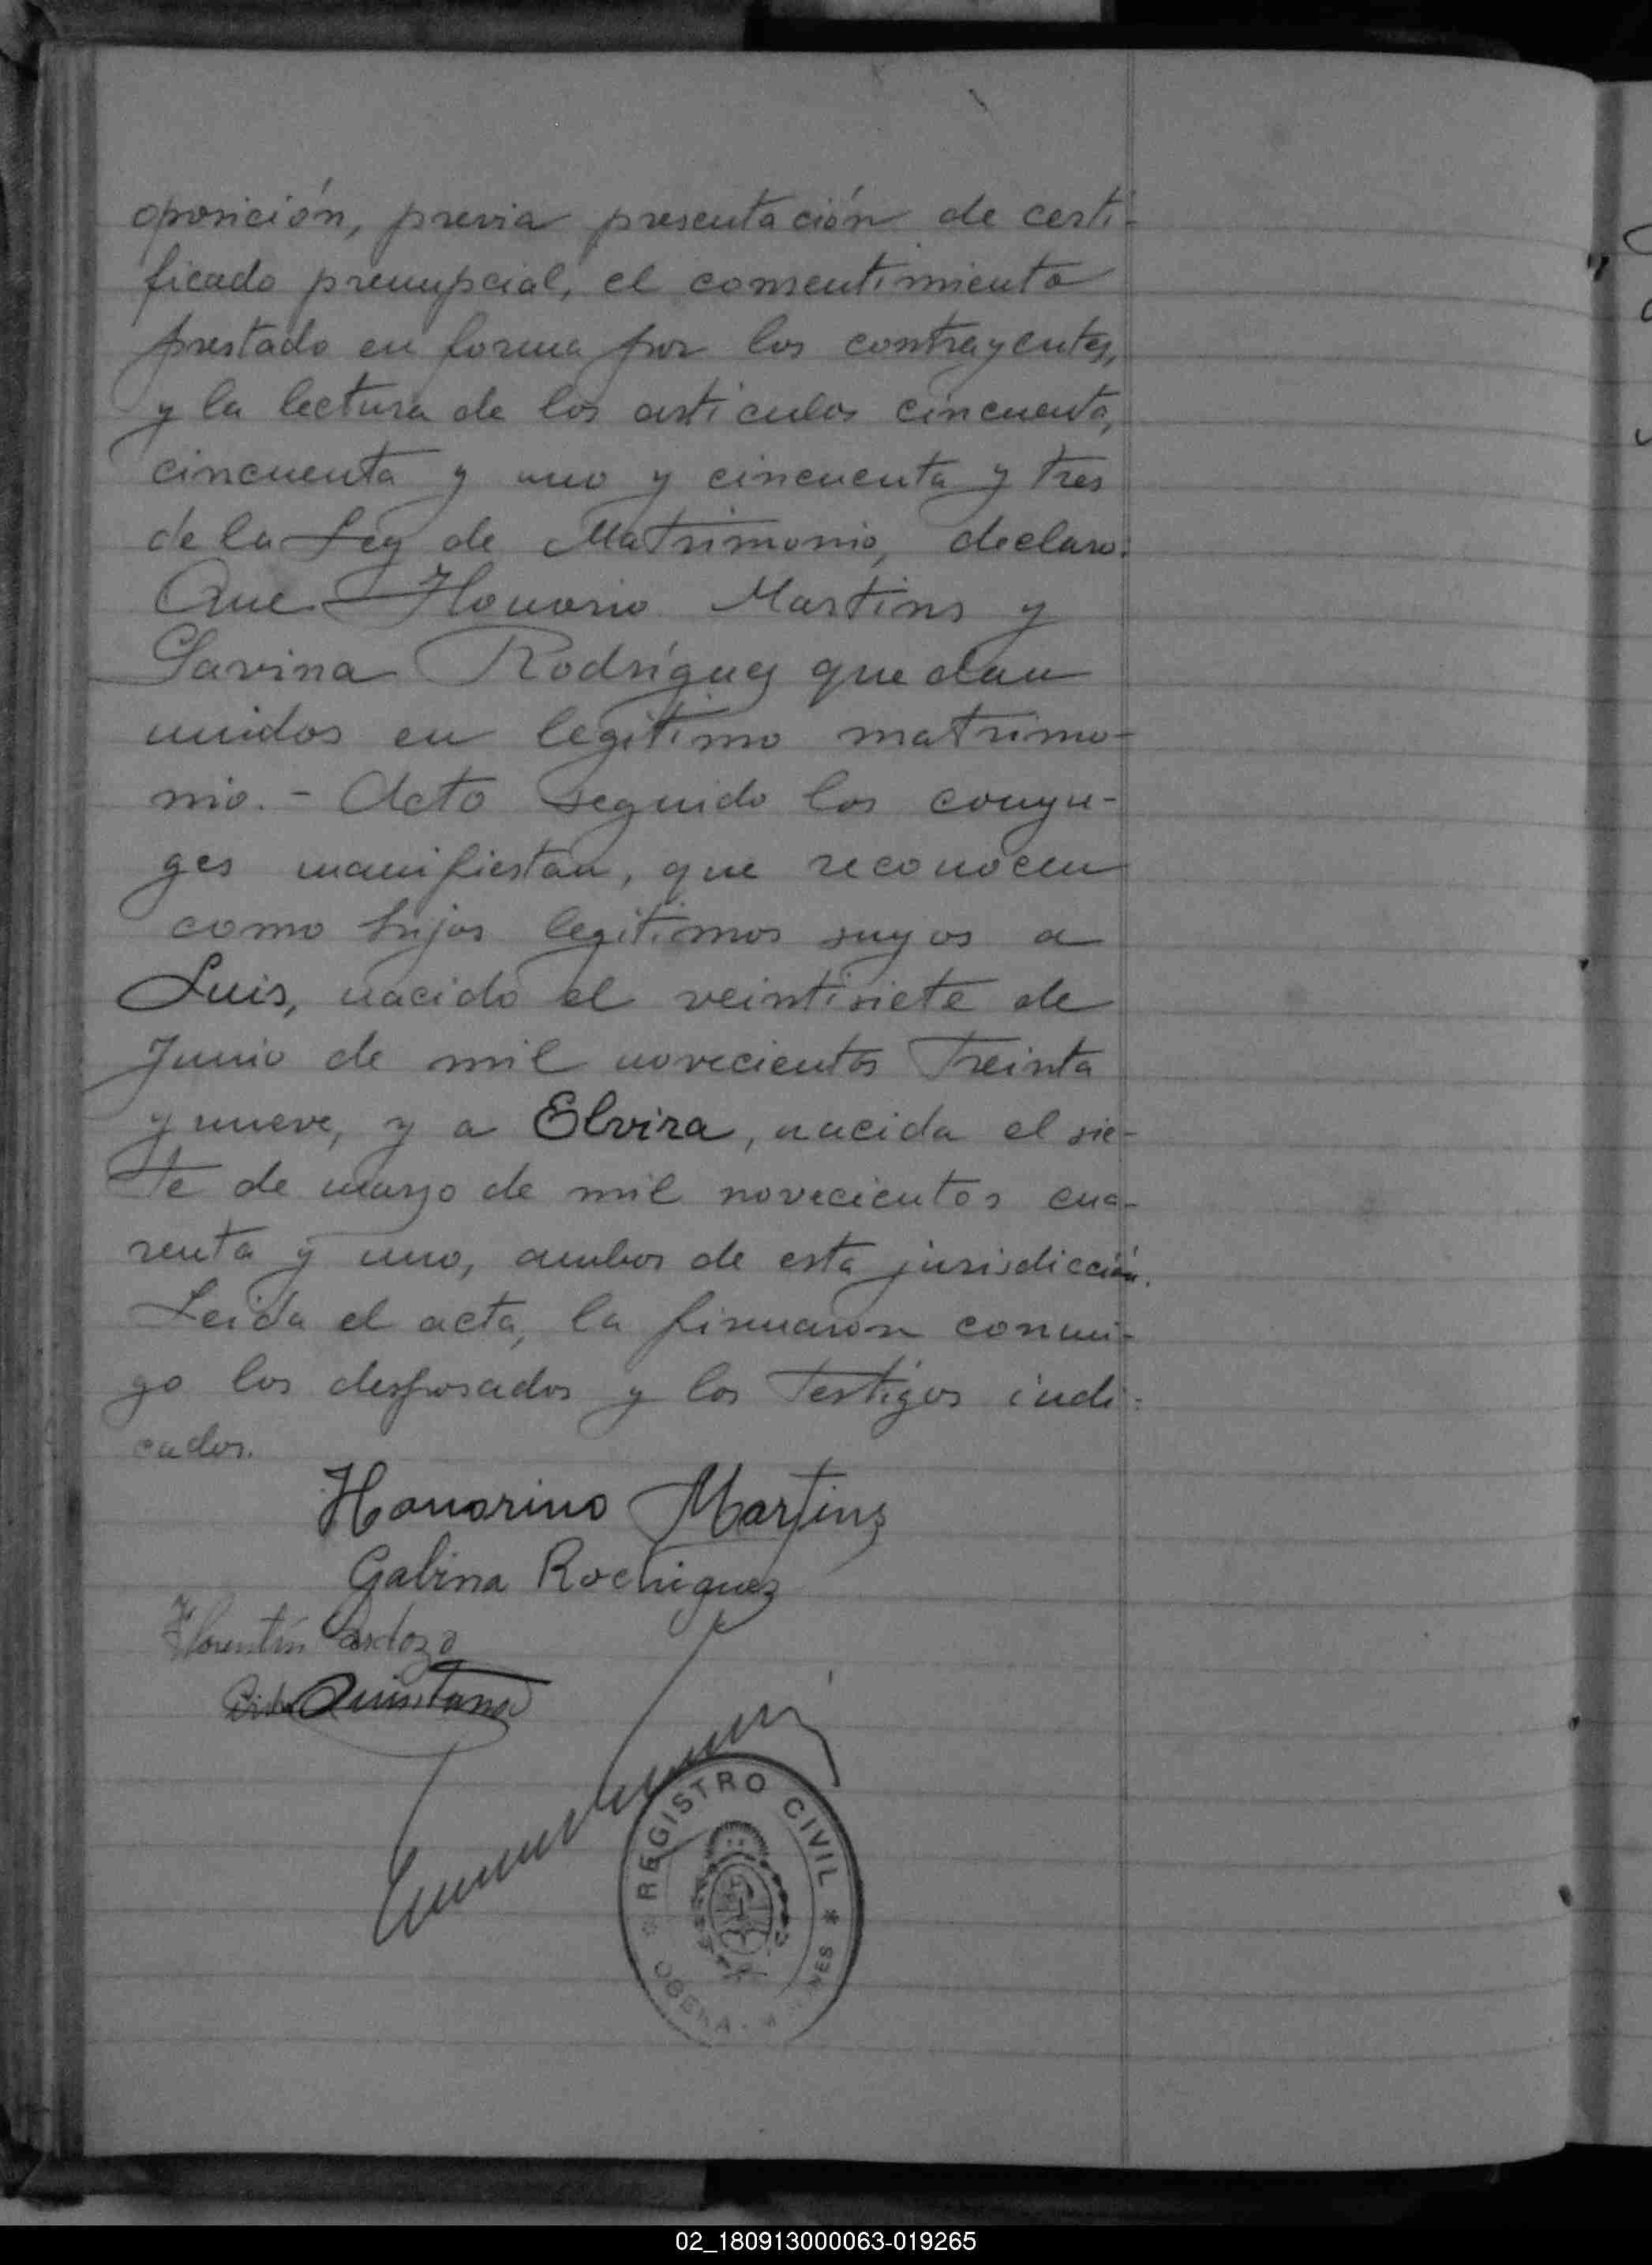 oposición, previa presentación de certi-
ficado prenupcial, el consentimiento
prestado en forma por los contrayentes,
y la lectura de los artículos cincuenta,
cincuenta y uno y cincuenta y tres
de la Ley de Matrimonio, declaro:
Que Honorio Martins y
Savina Rodríguez quedan
unidos en legítimo matrimo-
nio. - Acto seguido los conyu-
ges manifiestan, que reconocen
como hijos legítimos suyos a
Luis, nacido el veintisiete de
Junio de mil novecientos treinta
y nueve, y a Elvira, nacida el sie-
te de marzo de mil novecientos cua-
renta y uno, ambos de esta jurisdicción.
Leida el acta, la firmaron conmi-
go los desposados y los testigos indi-
cados.
Honorino Martins
Gabina Rochiguez
Florentín Cardozo
Quintana
REGISTRO CIVIL
OBERA
02_180913000063-019265